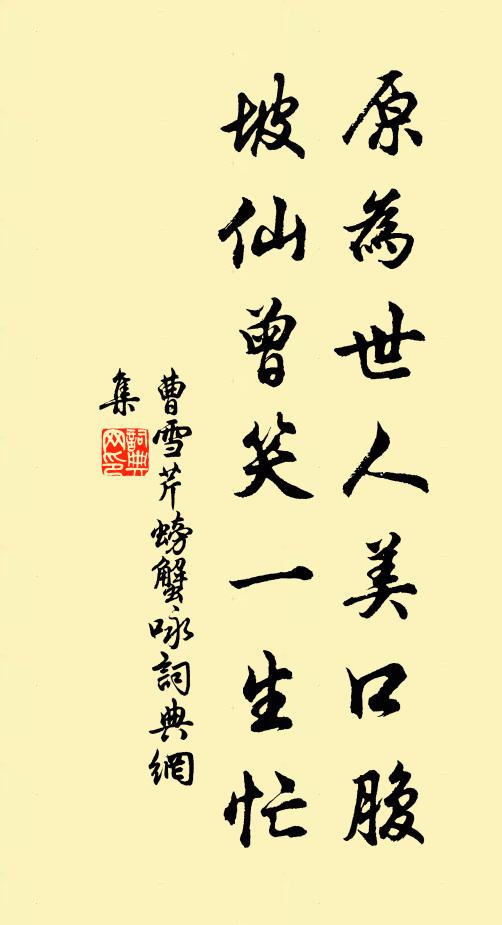 原為世人美口腹
坡仙曾笑一生忙
曹雪芹螃蟹咏詞典網
集
詞典
网印